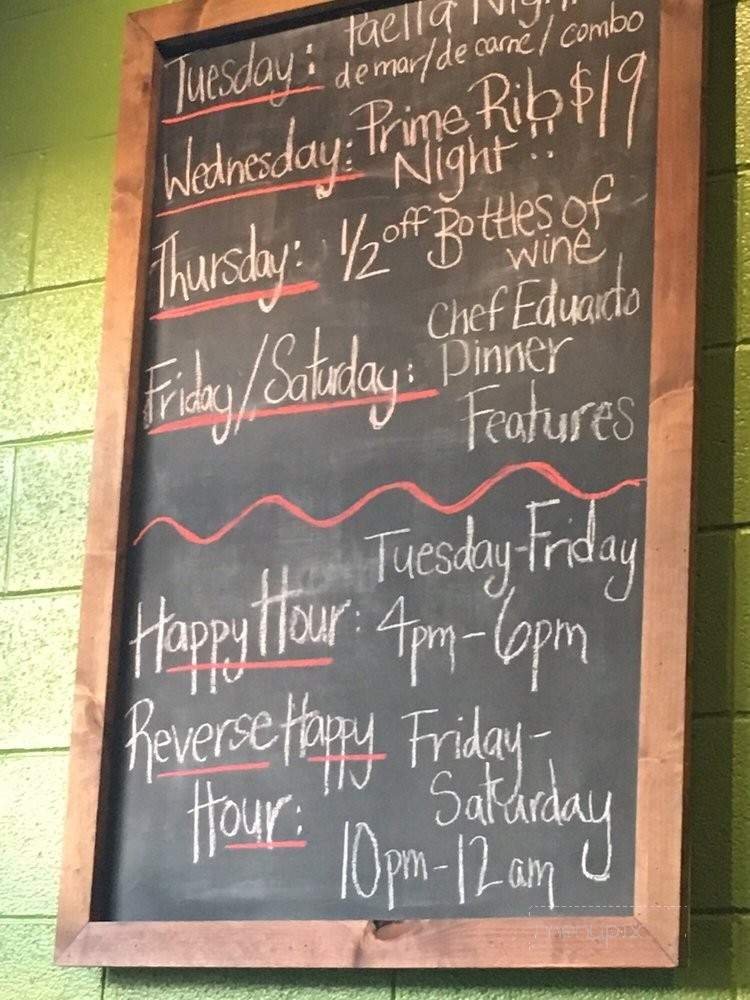 Tuesday: Paella Night
de mar/de carne/combo
Wednesday: Prime Rib $19
Night!!
Thursday: 1/2 off Bottles of
wine
Chef Eduardo
Friday/Saturday: Dinner
Features
Tuesday-Friday
Happy Hour: 4pm-6pm
Reverse Happy Friday-
Hour: Saturday
10pm-12am